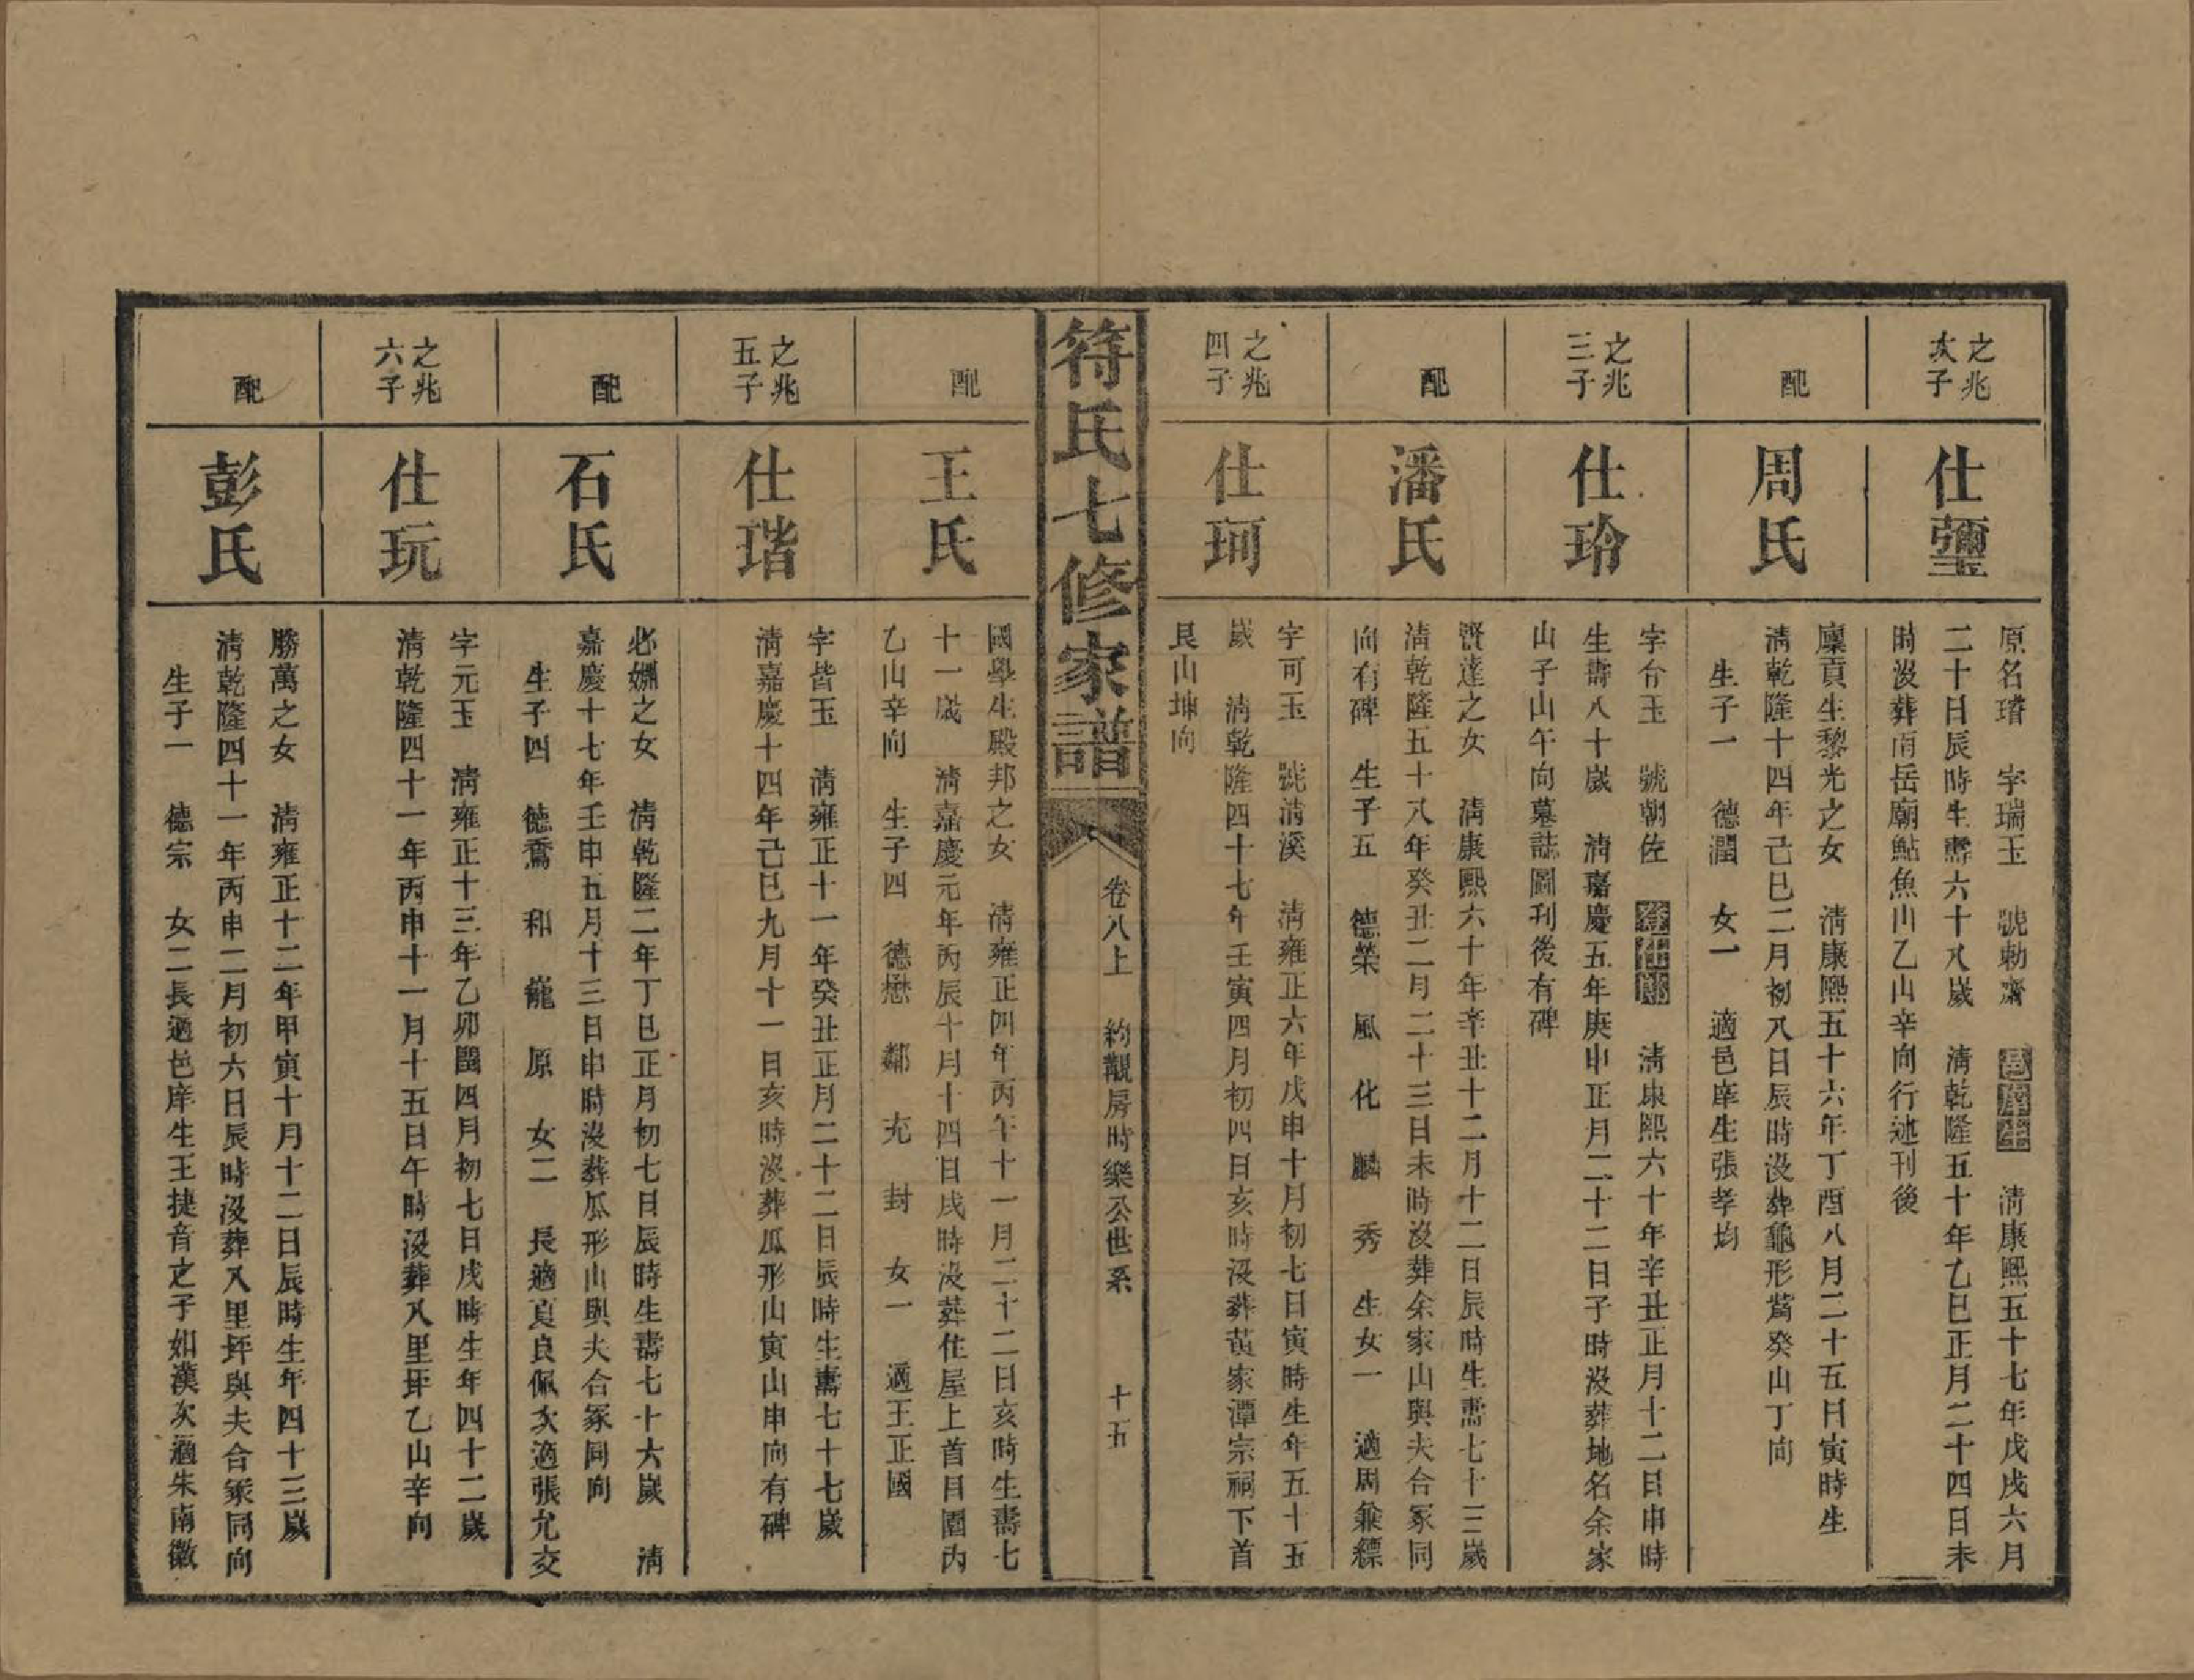 之兆
次子
仕璽
原名璿　字瑞玉　號勅齋　邑庠生　清康熙五十七年戊戌六月
二十日辰時生壽六十八歲　清乾隆五十年乙巳正月二十四日未
時沒葬南岳廟鮎魚山乙山辛向行述刊後
配
周氏
廩貢生黎光之女　清康熙五十六年丁酉八月二十五日寅時生
清乾隆十四年己巳二月初八日辰時沒葬龜形嘴癸山丁向
生子一　德潤　女一　適邑庠生張孝均
之兆
三子
仕玲
字介玉　號朝佐　登仕郎　清康熙六十年辛丑正月十二日申時
生壽八十歲　清嘉慶五年庚申正月二十二日子時沒葬地名余家
山子山午向墓誌圖刊後有碑
配
潘氏
賢達之女　清康熙六十年辛丑十二月十二日辰時生壽七十三歲
清乾隆五十八年癸丑二月二十三日未時沒葬余家山與夫合冢同
向有碑　生子五　德榮　風　化　麟　秀　生女一　適周兼縹
之兆
四子
仕珂
字可玉　號清溪　清雍正六年戊申十月初七日寅時生年五十五
歲　清乾隆四十七年壬寅四月初四日亥時沒葬黃家潭宗祠下首
艮山坤向
符氏七修家譜
卷八上　約觀房時樂公世系　十五
配
王氏
國學生殿邦之女　清雍正四年丙午十一月二十二日亥時生壽七
十一歲　清嘉慶元年丙辰十月十四日戌時沒葬住屋上首目園內
乙山辛向　生子四　德懋　鄰　充　封　女一　適王正國
之兆
五子
仕瑎
字皆玉　清雍正十一年癸丑正月二十二日辰時生壽七十七歲
清嘉慶十四年己巳九月十一日亥時沒葬瓜形山寅山申向有碑
配
石氏
必嫺之女　清乾隆二年丁巳正月初七日辰時生壽七十六歲　清
嘉慶十七年壬申五月十三日申時沒葬瓜形山與夫合冢同向
生子四　德喬　和　龍　原　女二　長適夏良佩次適張允交
之兆
六子
仕玩
字元玉　清雍正十三年乙卯閏四月初七日戌時生年四十二歲
清乾隆四十一年丙申十一月十五日午時沒葬八里坪乙山辛向
配
彭氏
勝萬之女　清雍正十二年甲寅十月十二日辰時生年四十三歲
清乾隆四十一年丙申二月初六日辰時沒葬八里坪與夫合冢同向
生子一　德宗　女二長適邑庠生王捷音之子如漢次適朱南徽